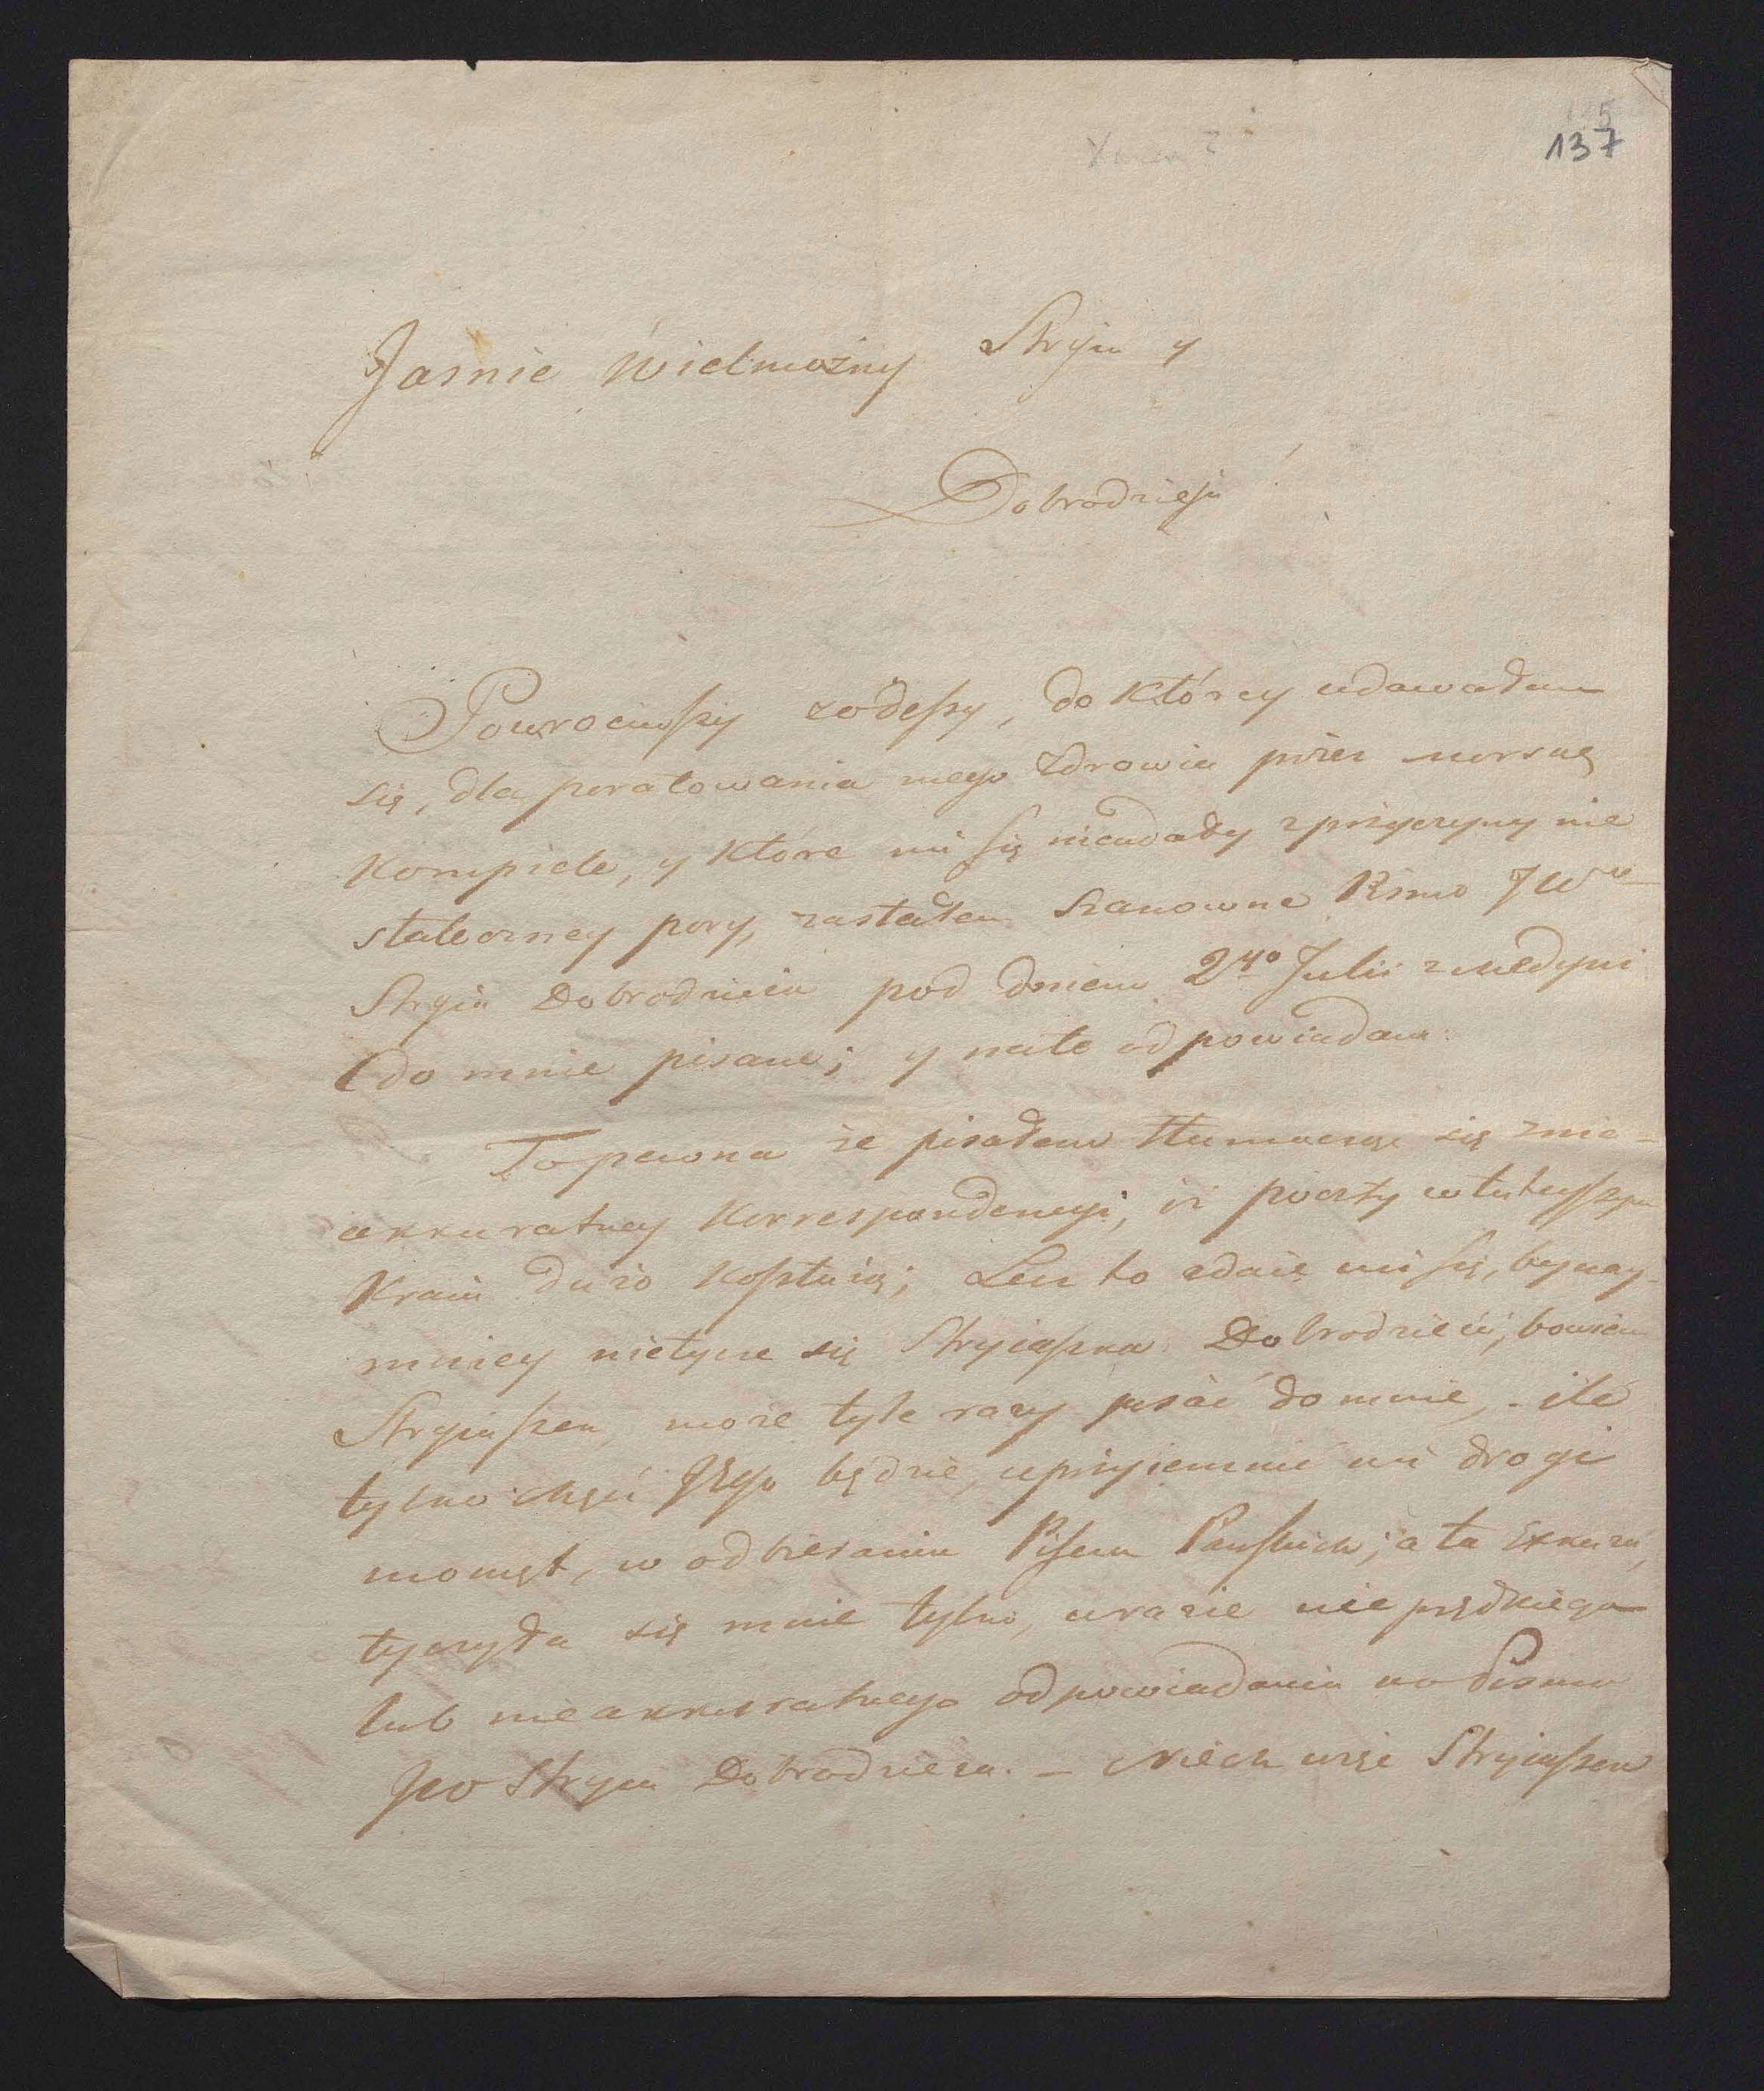 137
Jasnie Wielmożny Stryiu y
Dobrodzieju
Powrociwszy z Odessy, do którey udawałem
się, dla poratowania mego zdrowia przez morską
Kompiele, y które mi się nieudały z przyczyny nie
stateczney pory, zastałem szanowne Pismo JWo
Stryia Dobrodzieia pod dniem 2go Julii z Medyni
do mnie pisane; y nato odpowiadam.
To pewna że pisałem tłumacząc się z nie-
akkuratney Korrespondencyi, iż poczty w tuteyszym
Kraiu dużo kosztuią; Lecz to zdaie mi się, bynay-
mniey nietycze się Stryiaszka Dobrodzieia, bowiem
Stryiaszek może tyle razy pisać do mnie, - ile
tylko chęci Jego będzie, uprzyiemnić mi drogi
momęt, w odbieraniu Pisem Pańskich; a ta Exkuza,
tyczyła się mnie tylko, w razie nieprędkiego
lub nieakkuratnego odpowiadania na Pismo
JWo Stryia Dobrodzieia. - Niech więc Stryiaszek